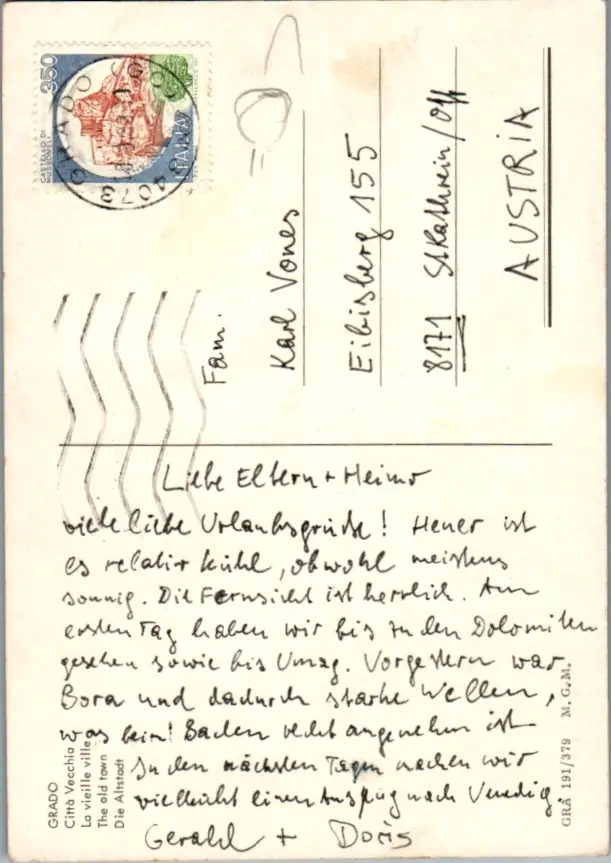 350
CASTELLO DI
ITALIA
GRADO
34073
Fam.
Karl Vones
Eibisberg 155
8171 St. Kathrein/Off
AUSTRIA
Liebe Eltern + Heimo
viele liebe Urlaubsgrüße! Heuer ist
es relativ kühl, obwohl meistens
sonnig. Die Fernsicht ist herrlich. Am
ersten Tag haben wir bis zu den Dolomiten
gesehen sowie bis Umag. Vorgestern war
Bora und dadurch starke Wellen,
was beim Baden recht angenehm ist
In den nächsten Tagen machen wir
vielleicht einen Ausflug nach Venedig.
Gerald + Doris
GRADO
Città Vecchia
La vieille ville
The old town
Die Altstadt
GRA 191/379 M. G. M.